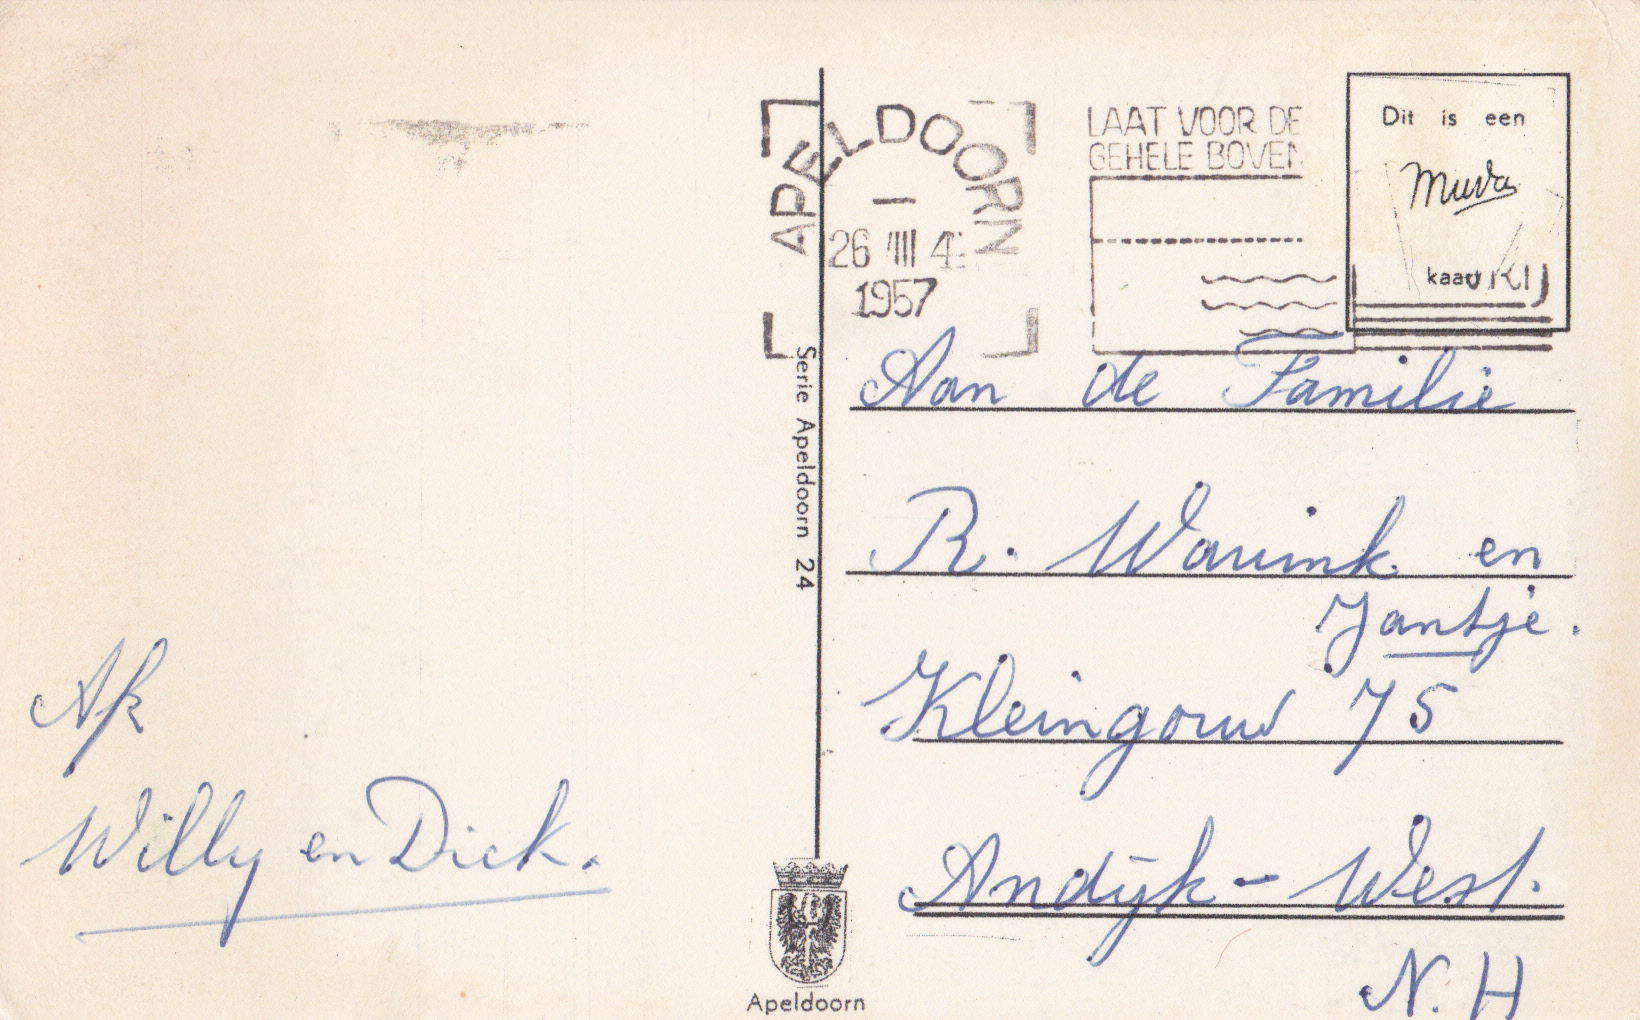 APELDOORN
26 VIII 4
1957
LAAT VOOR DE
GEHELE BOVEN
VRIJ
Dit is een
Muva
kaart
Serie Apeldoorn 24
Aan de Familie
R. Warink en
Jantje.
Kleingouw 75
Andijk - West.
N. H
Af
Willy en Dick.
Apeldoorn